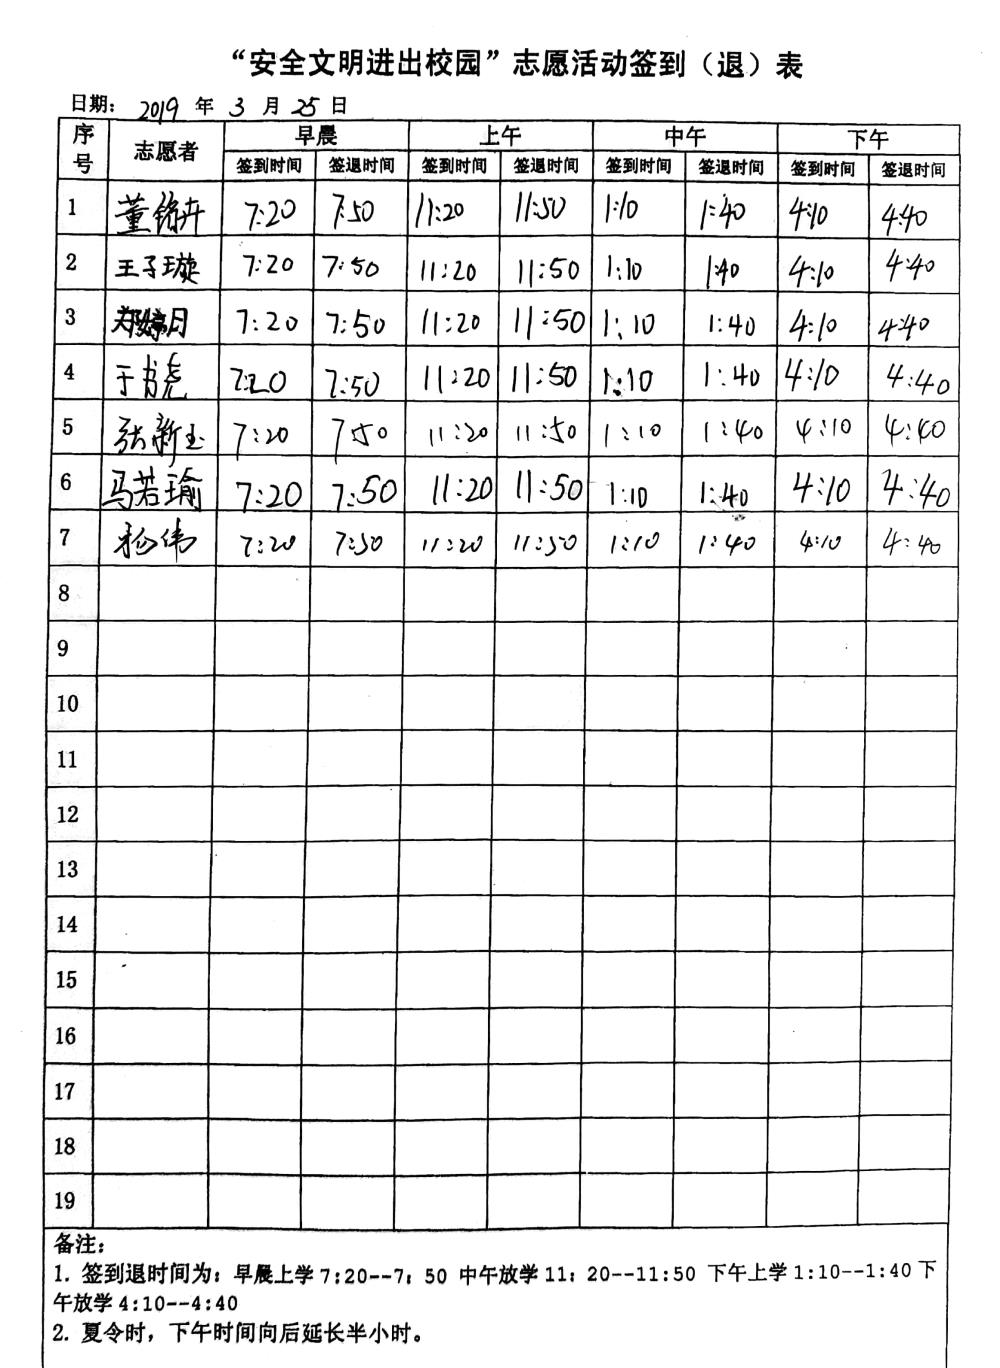 “安全文明进出校园”志愿活动签到（退）表
日期： 2019 年 3 月 25 日
序号 志愿者 早晨 上午 中午 下午
签到时间 签退时间 签到时间 签退时间 签到时间 签退时间 签到时间 签退时间
1 董铭卉 7:20 7:50 11:20 11:50 1:10 1:40 4:10 4:40
2 王子璇 7:20 7:50 11:20 11:50 1:10 1:40 4:10 4:40
3 郑婷月 7:20 7:50 11:20 11:50 1:10 1:40 4:10 4:40
4 于书虎 7:20 7:50 11:20 11:50 1:10 1:40 4:10 4:40
5 张新玉 7:20 7:50 11:20 11:50 1:10 1:40 4:10 4:40
6 马若瑜 7:20 7:50 11:20 11:50 1:10 1:40 4:10 4:40
7 杨伟 7:20 7:50 11:20 11:50 1:10 1:40 4:10 4:40
8
9
10
11
12
13
14
15
16
17
18
19
备注：
1. 签到退时间为：早晨上学 7:20--7：50 中午放学 11：20--11:50 下午上学 1:10--1:40 下
午放学 4:10--4:40
2. 夏令时，下午时间向后延长半小时。